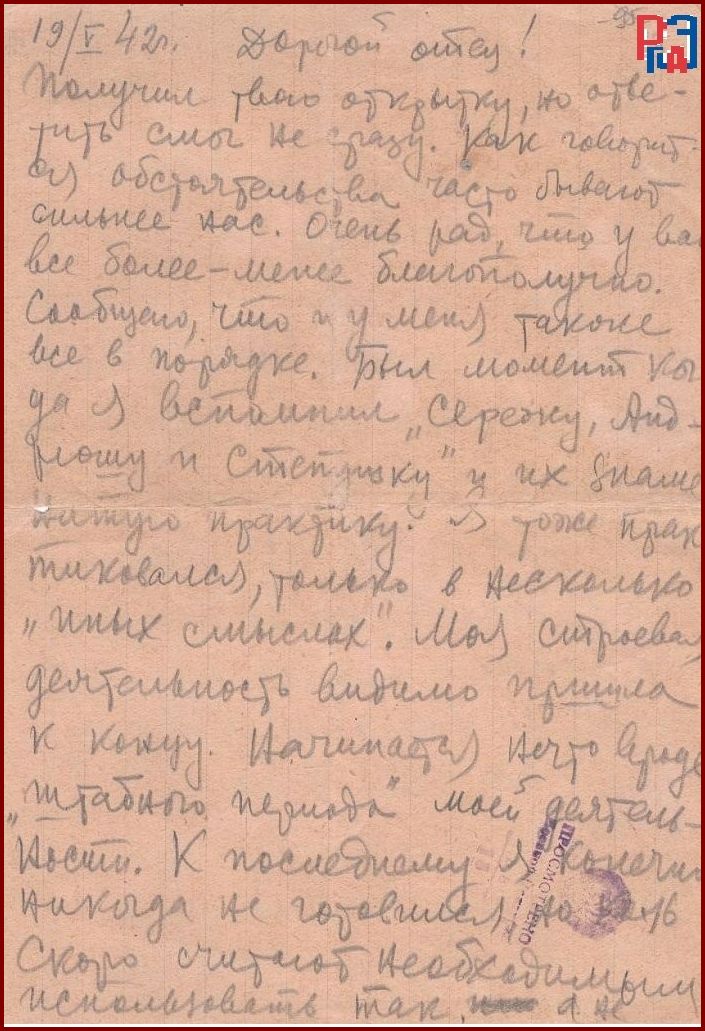 19/V 42г. Дорогой отец!
95
РГАЭ
Получил твою открытку, но отве-
тить смог не сразу. Как говорит-
ся обстоятельства часто бывают
сильнее нас. Очень рад, что у вас
все более-менее благополучно.
Сообщаю, что и у меня также
все в порядке. Был момент ког
да я вспомнил „Сережку, Анд-
рюшу и Степушку" и их знаме
нитую практику. Я тоже прак
тиковался, только в несколько
„иных смыслах". Моя строевая
деятельность видимо пришла
к концу. Начинается нечто вроде
„штабного периода" моей деятель-
ности. К последнему я конечно
ПРОСМОТРЕНО
никогда не готовился, но коль
скоро считают необходимым
использовать так, а не